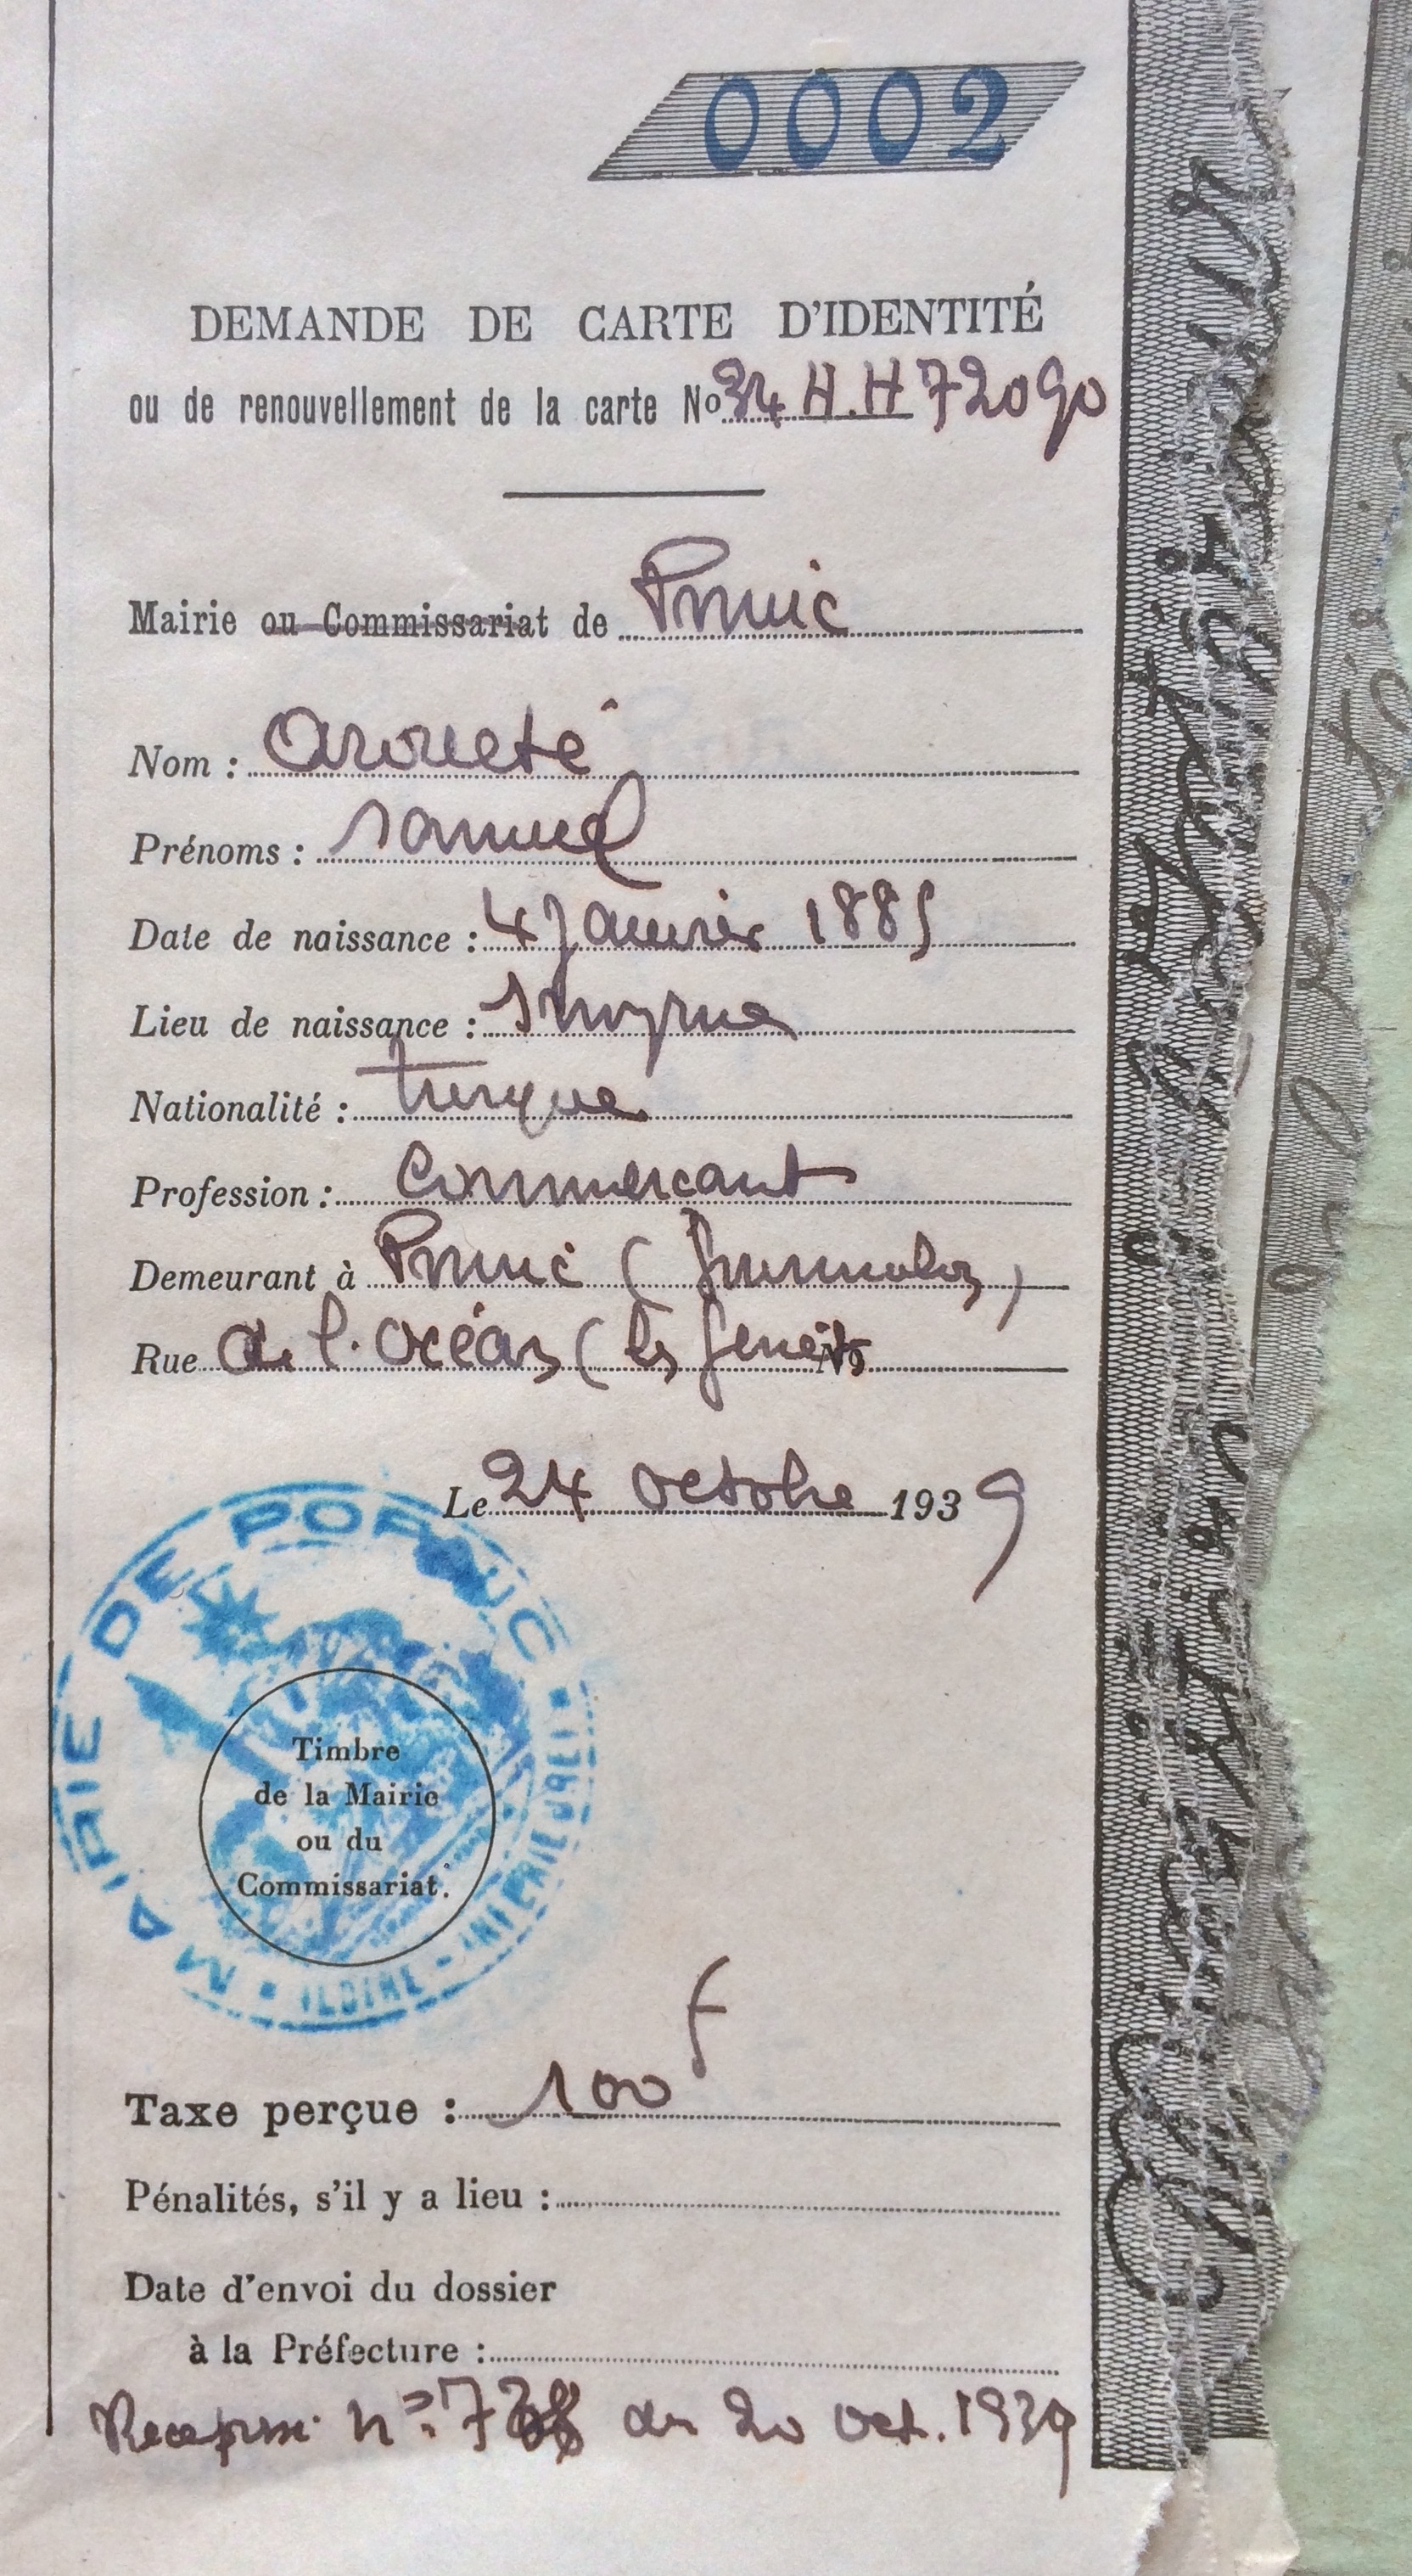 0002
DEMANDE DE CARTE D'IDENTITÉ
ou de renouvellement de la carte No 34 H.H 72090
Mairie ou Commissariat de Pornic
Nom : Arouete
Prénoms : Samuel
Date de naissance : 4 Janvier 1885
Lieu de naissance : Smyrne
Nationalité : turque
Profession : Commercant
Demeurant à Pornic (
Rue de l'Océan (les Genets No
Le 24 octobre 1939
MAIRIE DE PORNIC
Timbre
de la Mairie
ou du
Commissariat.
Taxe perçue : 100 F
Pénalités, s'il y a lieu :
Date d'envoi du dossier
à la Préfecture :
n° du 20 oct. 1939